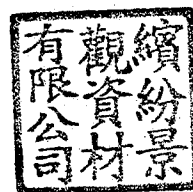 繽紛景
觀資材
有限公司